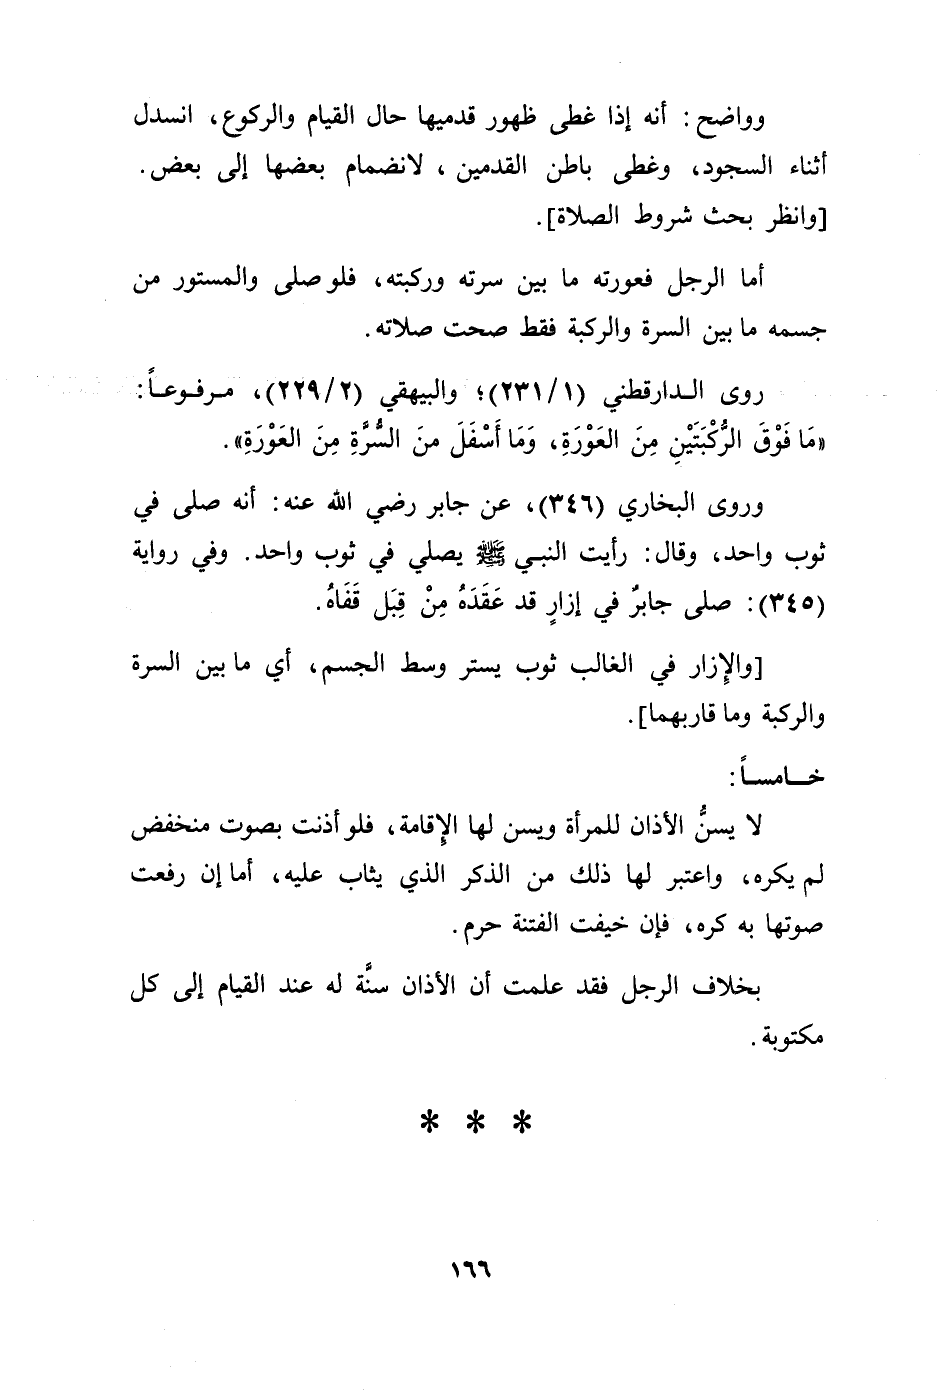 وواضح: أنه إذا غطى ظهور قدميها حال القيام والركوع، انسدل
أثناء السجود، وغطى باطن القدمين، لانضمام بعضها إلى بعض.
[وانظر بحث شروط الصلاة].
أما الرجل فعورته ما بين سرته وركبته، فلو صلى والمستور من
جسمه ما بين السرة والركبة فقط صحت صلاته.
روى الـدارقطني (٢٣١/١)؛ والبيهقي (٢٢٩/٢)، مـرفـوعـاً:
«مَا فَوْقَ الرُّكْبَتَيْنِ مِنَ العَوْرَةِ، وَمَا أَسْفَلَ منَ السُّرَّةِ مِنَ العَوْرَةِ».
وروى البخاري (٣٤٦)، عن جابر رضي الله عنه: أنه صلى في
ثوب واحد، وقال: رأيت النبي ﷺ يصلي في ثوب واحد. وفي رواية
(٣٤٥): صلى جابرٌ في إزارٍ قد عَقَدَهُ مِنْ قِبَل قَفَاهُ.
[والإزار في الغالب ثوب يستر وسط الجسم، أي ما بين السرة
والركبة وما قاربهما].
خـامسـاً:
لا يسنُّ الأذان للمرأة ويسن لها الإقامة، فلو أذنت بصوت منخفض
لم يكره، واعتبر لها ذلك من الذكر الذي يثاب عليه، أما إن رفعت
صوتها به كره، فإن خيفت الفتنة حرم.
بخلاف الرجل فقد علمت أن الأذان سنَّة له عند القيام إلى كل
مكتوبة.
* * *
١٦٦